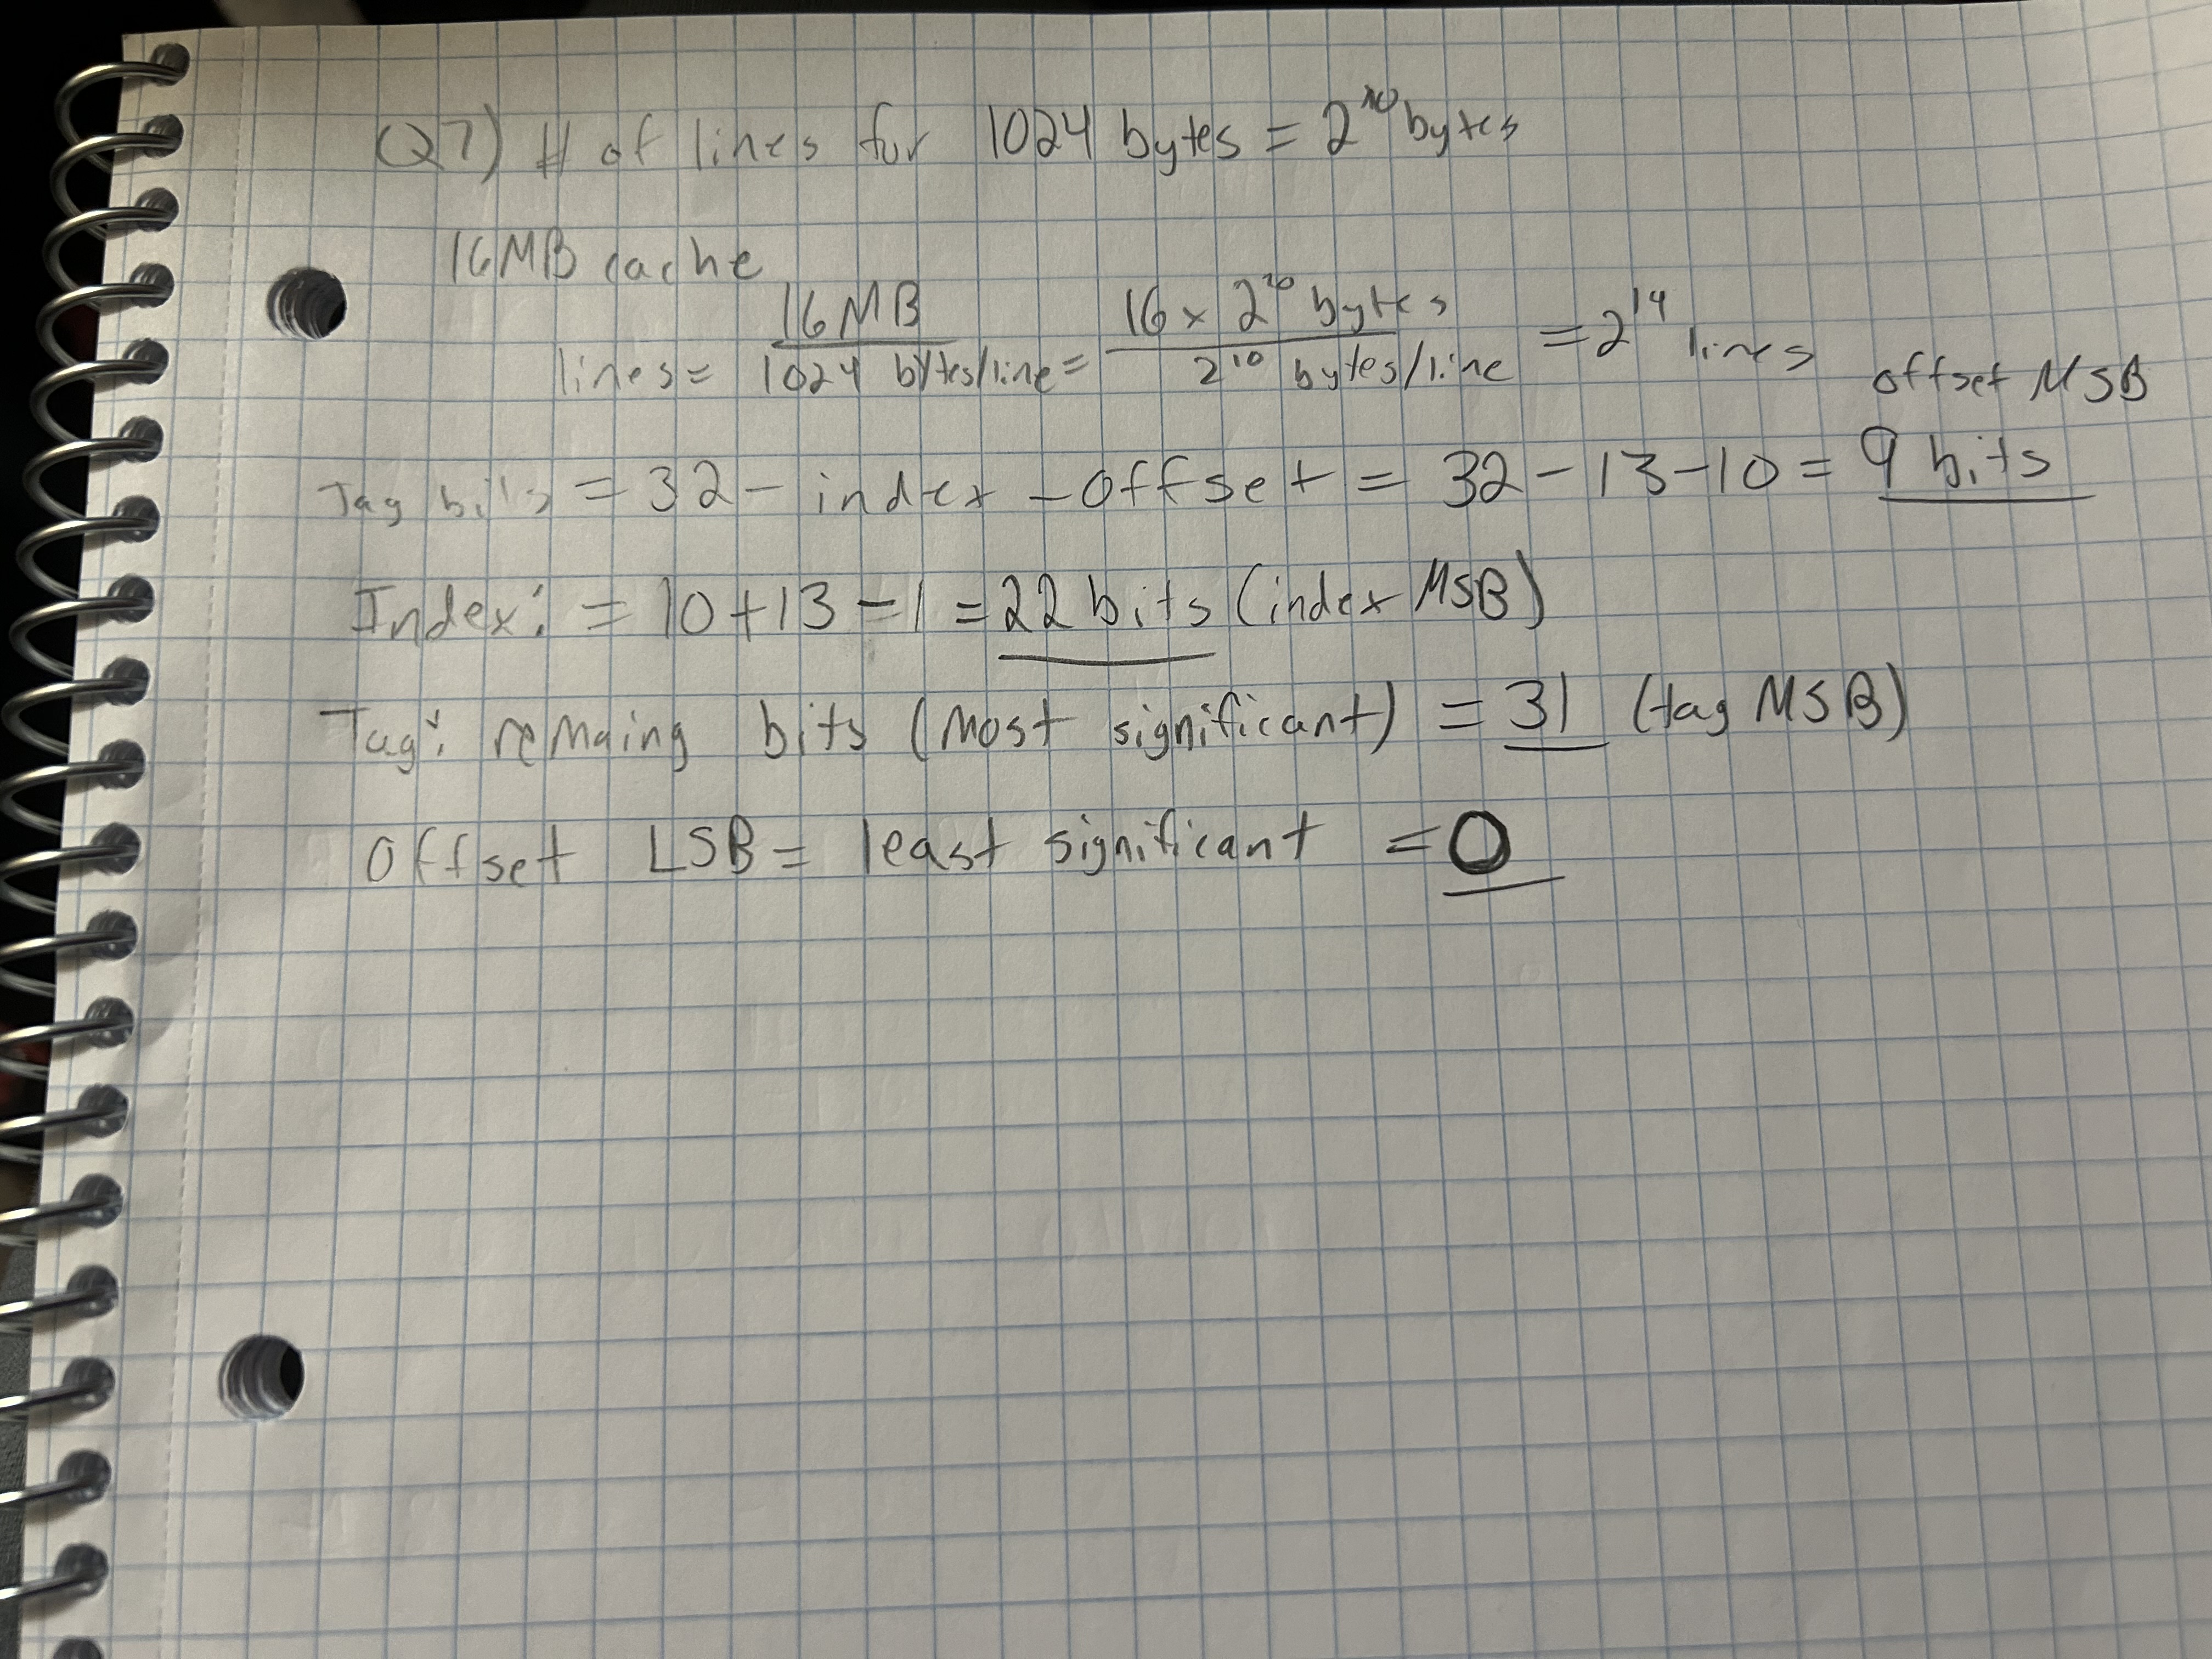 Q7) # of lines for 1024 bytes = 2^10 bytes
16MB cache
lines = 16MB / 1024 bytes/line = 16 × 2^20 bytes / 2^10 bytes/line = 2^14 lines
offset MSB
Tag bits = 32 - index - offset = 32 - 13 - 10 = 9 bits
Index: = 10 + 13 - 1 = 22 bits (index MSB)
Tag: remaing bits (most significant) = 31 (tag MSB)
Offset LSB = least significant = 0